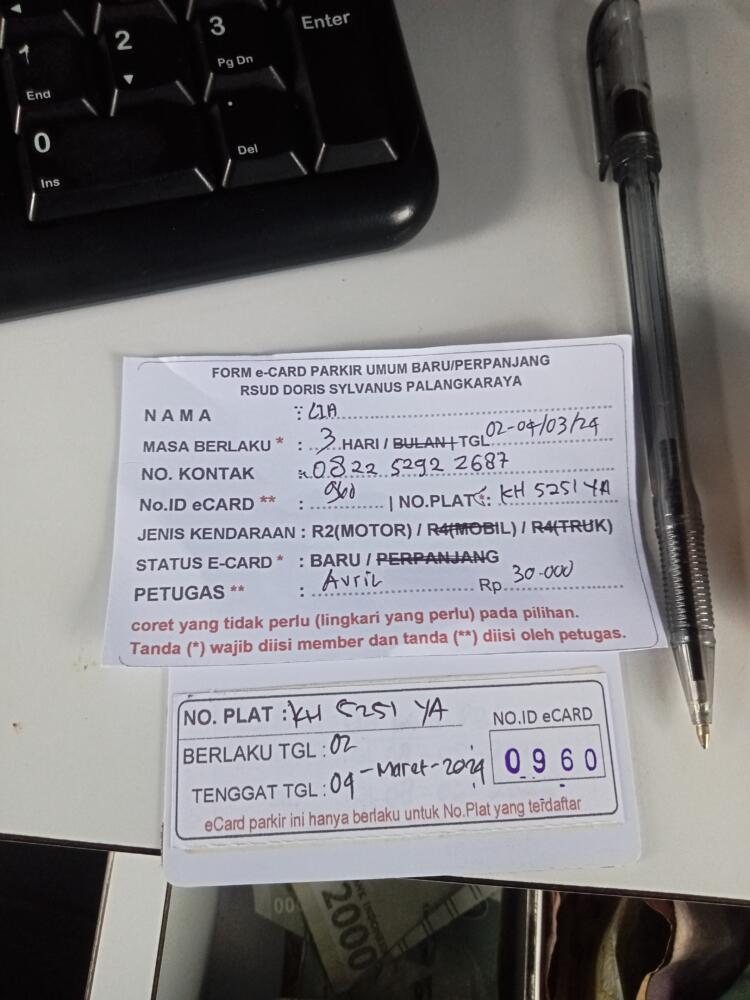 1
End
2
3
Pg Dn
Enter
0
Ins
.
Del
FORM e-CARD PARKIR UMUM BARU/PERPANJANG
RSUD DORIS SYLVANUS PALANGKARAYA
NAMA : LIA
MASA BERLAKU * : 3 HARI / BULAN | TGL 02-04/03/24
NO. KONTAK : 0822 5292 2687
No.ID eCARD ** : 960 | NO.PLAT * : KH 5251 YA
JENIS KENDARAAN : R2(MOTOR) / R4(MOBIL) / R4(TRUK)
STATUS E-CARD * : BARU / PERPANJANG
PETUGAS ** : Avril Rp 30.000
coret yang tidak perlu (lingkari yang perlu) pada pilihan.
Tanda (*) wajib diisi member dan tanda (**) diisi oleh petugas.
NO. PLAT : KH 5251 YA
NO.ID eCARD
0960
BERLAKU TGL : 02
TENGGAT TGL : 04 - Maret - 2024
eCard parkir ini hanya berlaku untuk No.Plat yang terdaftar
2000